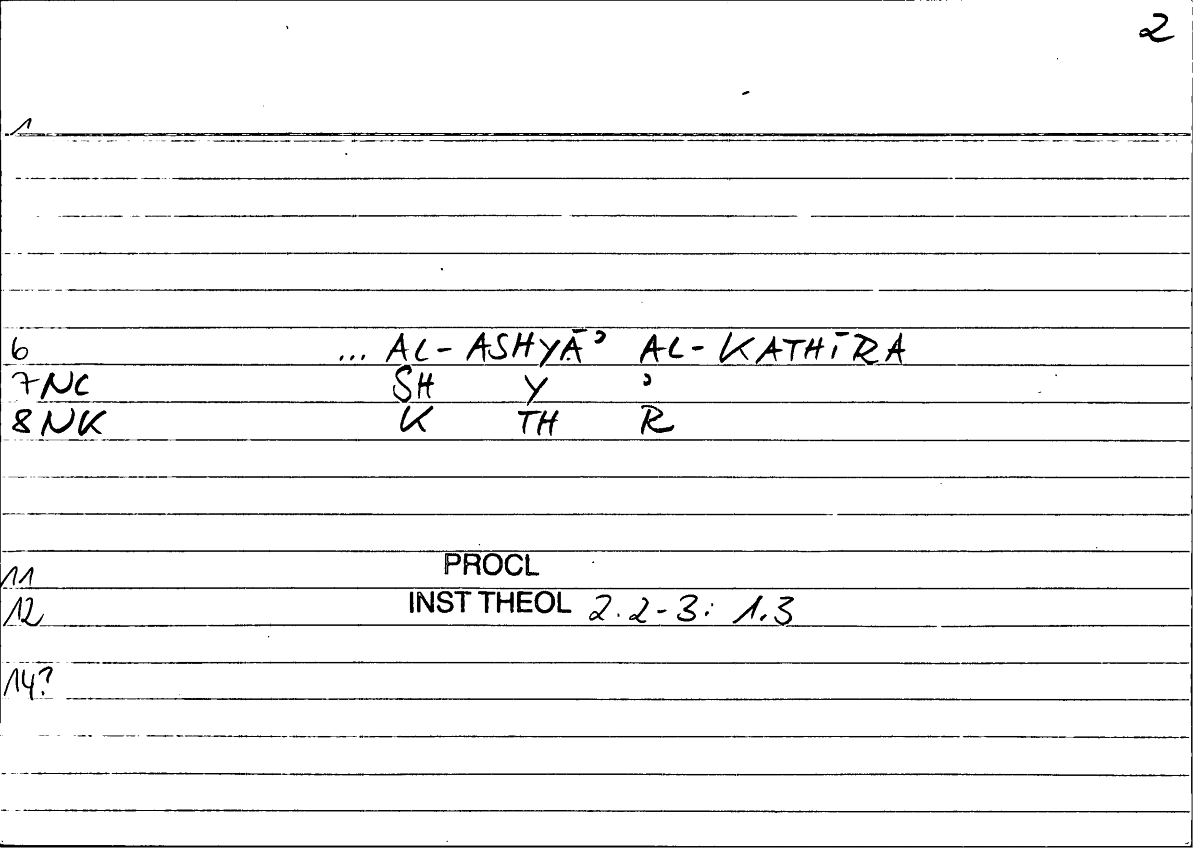 2
1
6 ... AL-ASHYĀʾ AL-KATHĪRA
7 NC SH Y ʾ
8 NK K TH R
11 PROCL
12 INST THEOL 2.2-3: 1.3
14?